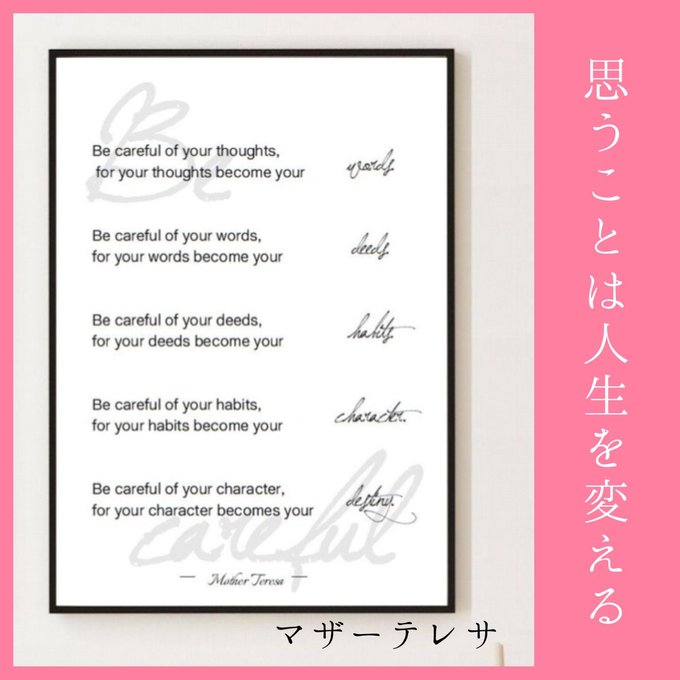 思うことは人生を変える
Be
Be careful of your thoughts,
for your thoughts become your words.
Be careful of your words,
for your words become your deeds.
Be careful of your deeds,
for your deeds become your habits.
Be careful of your habits,
for your habits become your character.
Be careful of your character,
for your character becomes your destiny.
careful
— Mother Teresa —
マザーテレサ